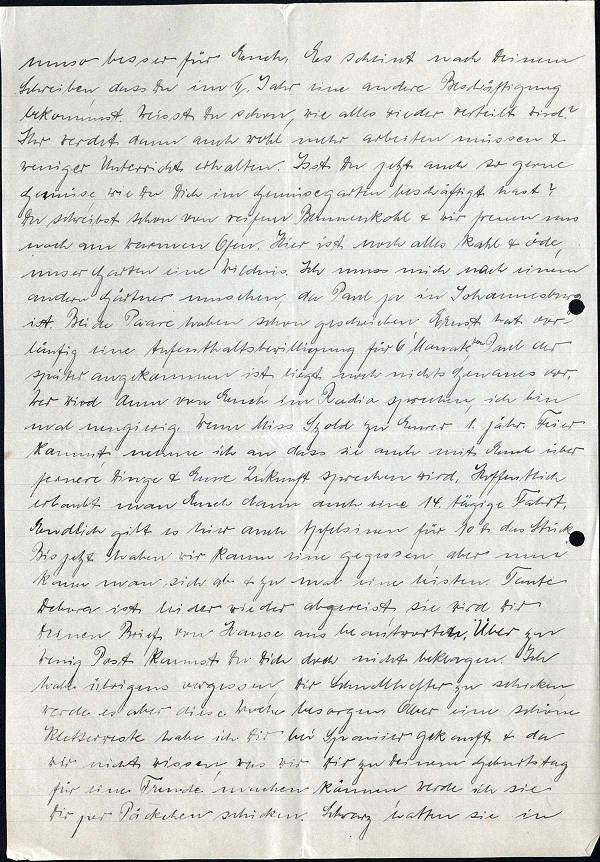 umso besser für Euch. Es scheint nach Deinem
Schreiben dass Du im II. Jahr eine andere Beschäftigung
bekommst. Weisst Du schon, wie alles wieder verteilt wird?
Ihr werdet dann auch wohl mehr arbeiten müssen &
weniger Unterricht erhalten. Isst Du jetzt auch so gerne
Gemüse, wie Du Dich im Gemüsegarten beschäftigt hast?
Du schreibst schon von reifem Blumenkohl & wir freuen uns
noch am warmen Ofen. Hier ist noch alles kahl & öde,
unser Garten eine Wildnis. Ich muss mich nach einem
andern Gärtner umsehen, da Paul ja in Johannesburg
ist. Beide Paare haben schon geschrieben. Ernst hat vor-
läufig eine Aufenthaltsbewilligung für 6 Monate von Paul der
später angekommen ist liegt noch nichts Genaues vor.
Wer wird denn von Euch im Radio sprechen, ich bin
mal neugierig. Wenn Miss Szold zu Eurer 1. jähr. Feier
kommt, nehme ich an dass sie auch mit Euch über
fernere Dinge & Eure Zukunft sprechen wird. Hoffentlich
erlaubt man Euch dann auch eine 14. tägige Fahrt.
Endlich gibt es hier auch Apfelsinen für 10 das Stück
Bis jetzt haben wir kaum eine gegessen aber nun
kann man sich ab & zu mal eine leisten. Tante
Debora ist leider wieder abgereist sie wird Dir
Deinen Brief von Hause aus beantworten. Über zu
wenig Post kannst Du Dich doch nicht beklagen. Ich
habe übrigens vergessen, Dir Schnellhefter zu schicken,
werde es aber diese Woche besorgen. Aber eine schöne
Kletterweste habe ich Dir bei gekauft & da
wir nicht wissen, was wir Dir zu Deinem Geburtstag
für eine Freude machen können werde ich sie
Dir per Päckchen schicken. Schwarz hatten sie in